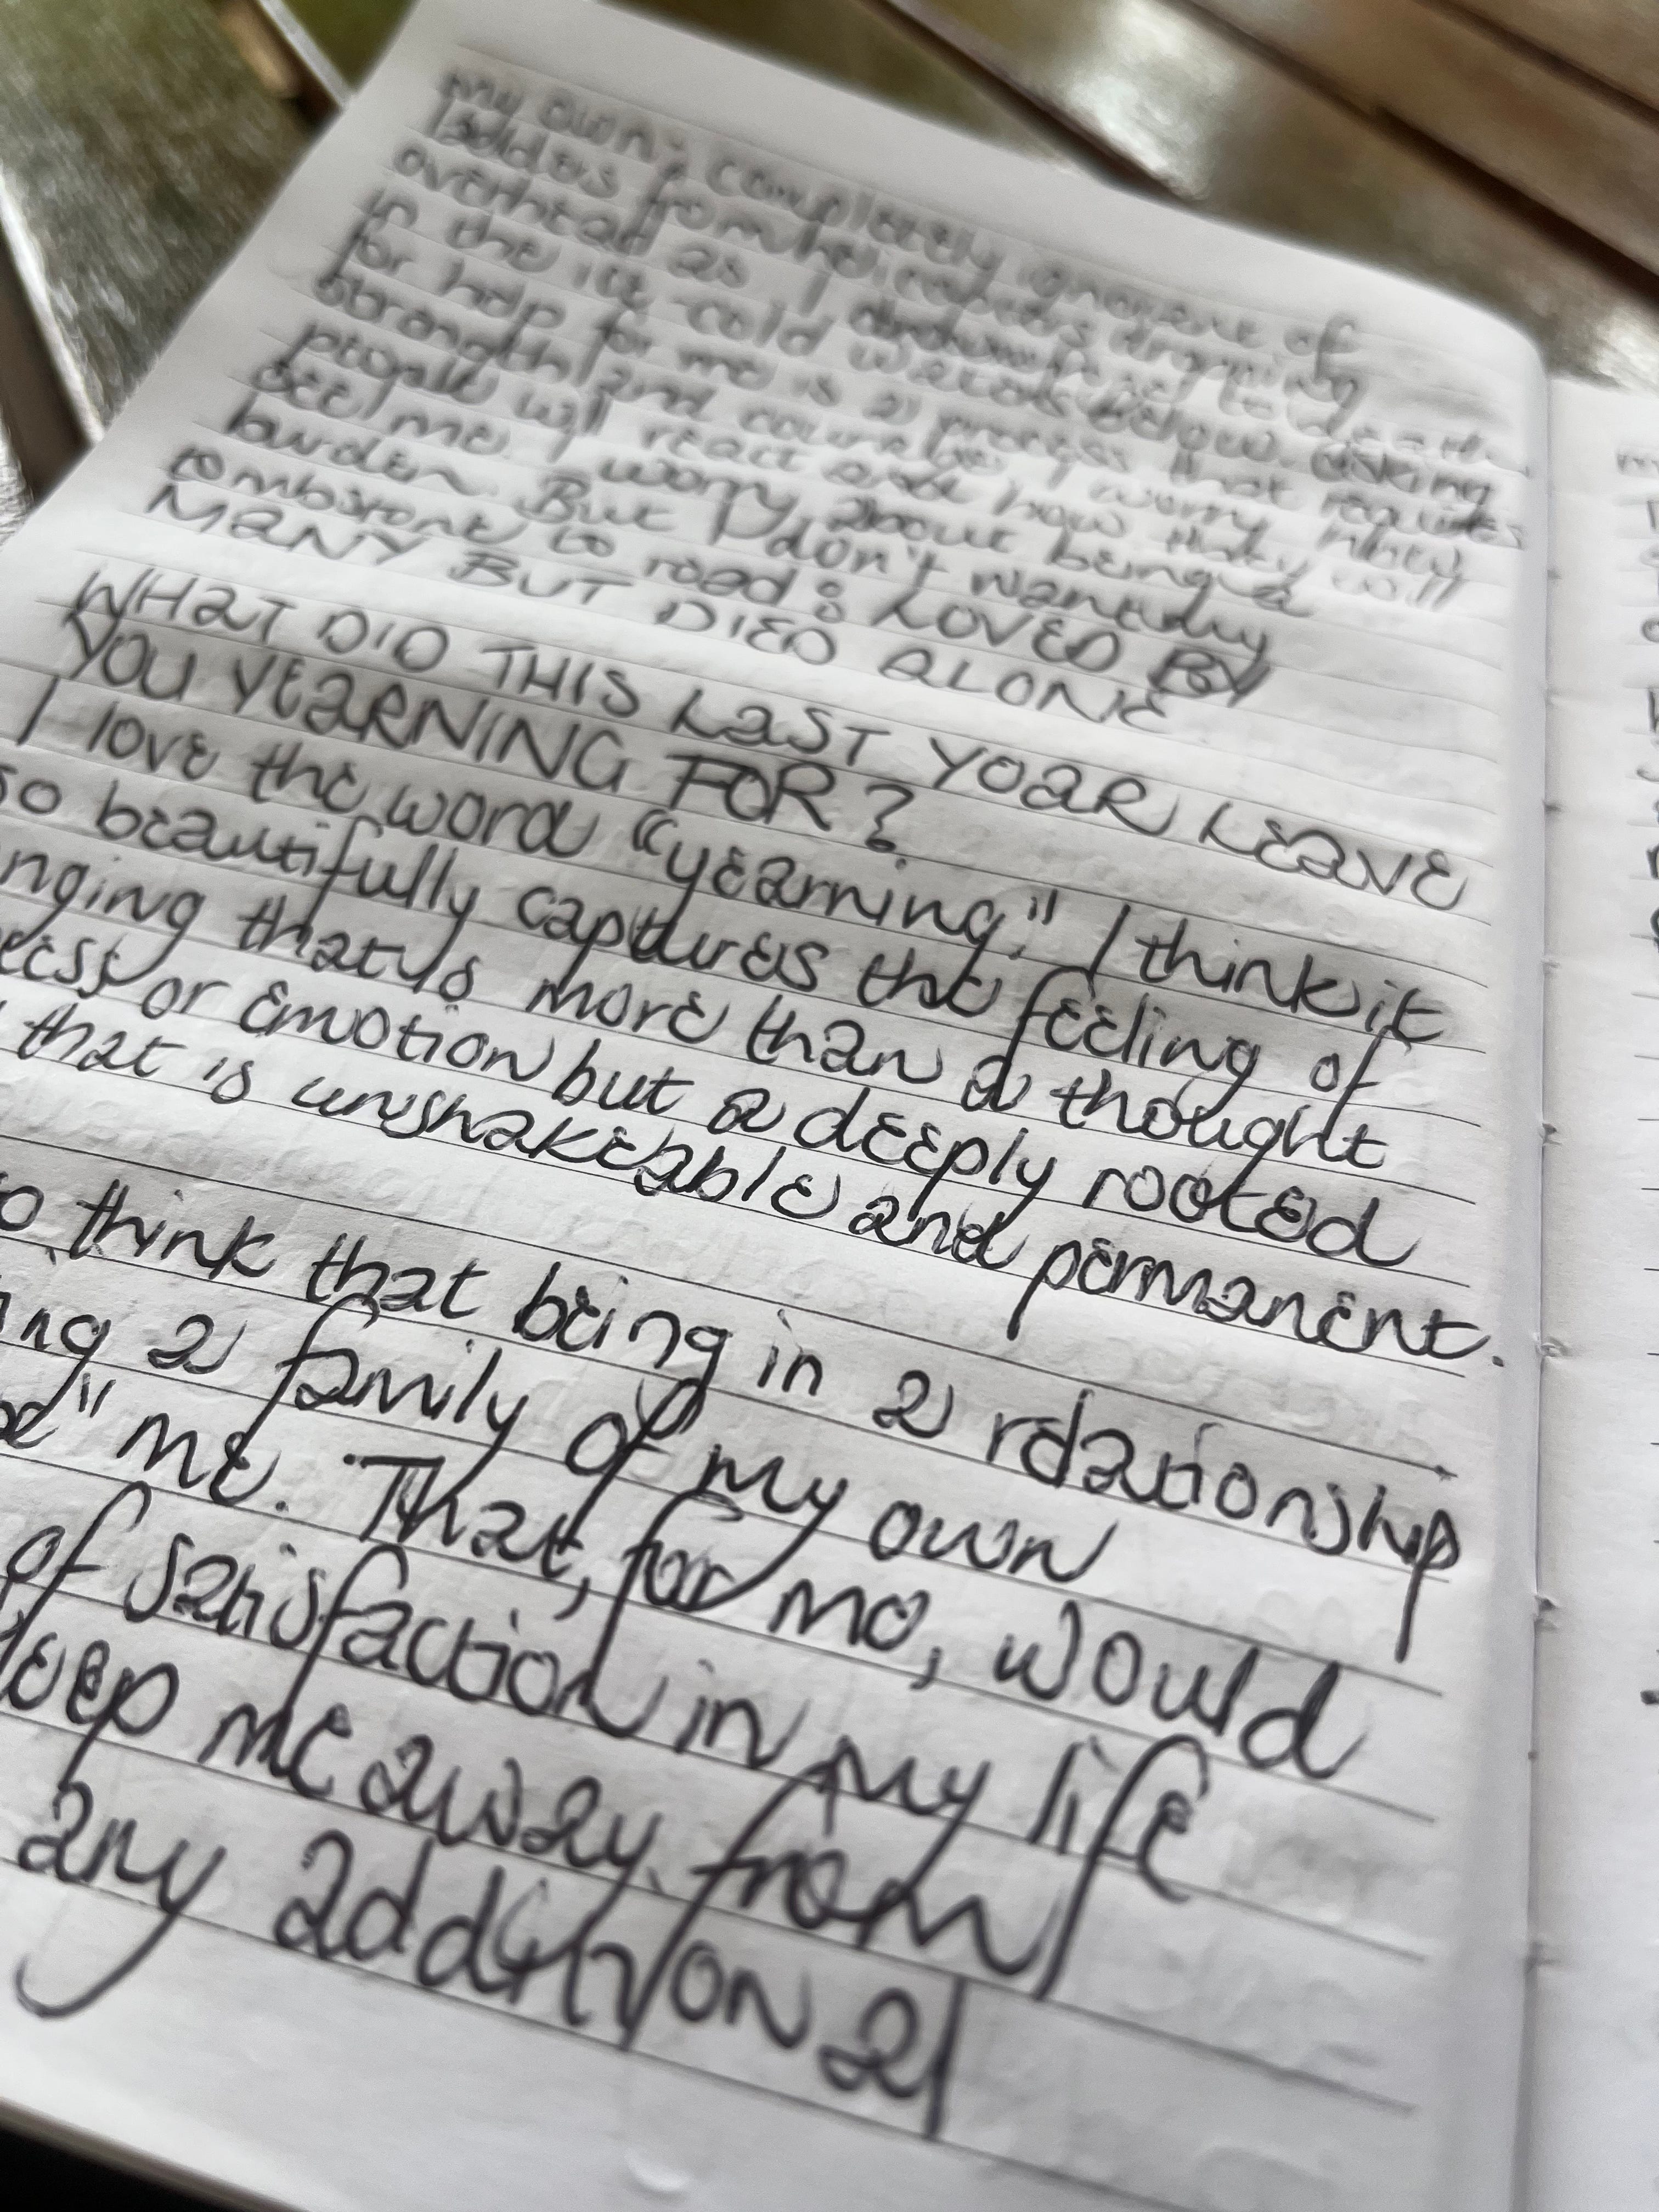 my own, completely ignorant of
ladders from helicopters draping
overhead as I drown to death
in the ice-cold waters below. Asking
for help for me is a process that requires
strength and courage. I worry how
people will react and how they will
see me. I worry about being a
burden. But I don't want my
tombstone to read: LOVED BY
MANY BUT DIED ALONE
WHAT DID THIS LAST YEAR LEAVE
YOU YEARNING FOR?
I love the word "yearning." I think it
so beautifully captures the feeling of
nging that is more than a thought
cess or emotion but a deeply rooted
that is unshakeable and permanent.
o think that being in a relationship
ing a family of my own
me. That, for me, would
of satisfaction in my life
eep me away from
any additional